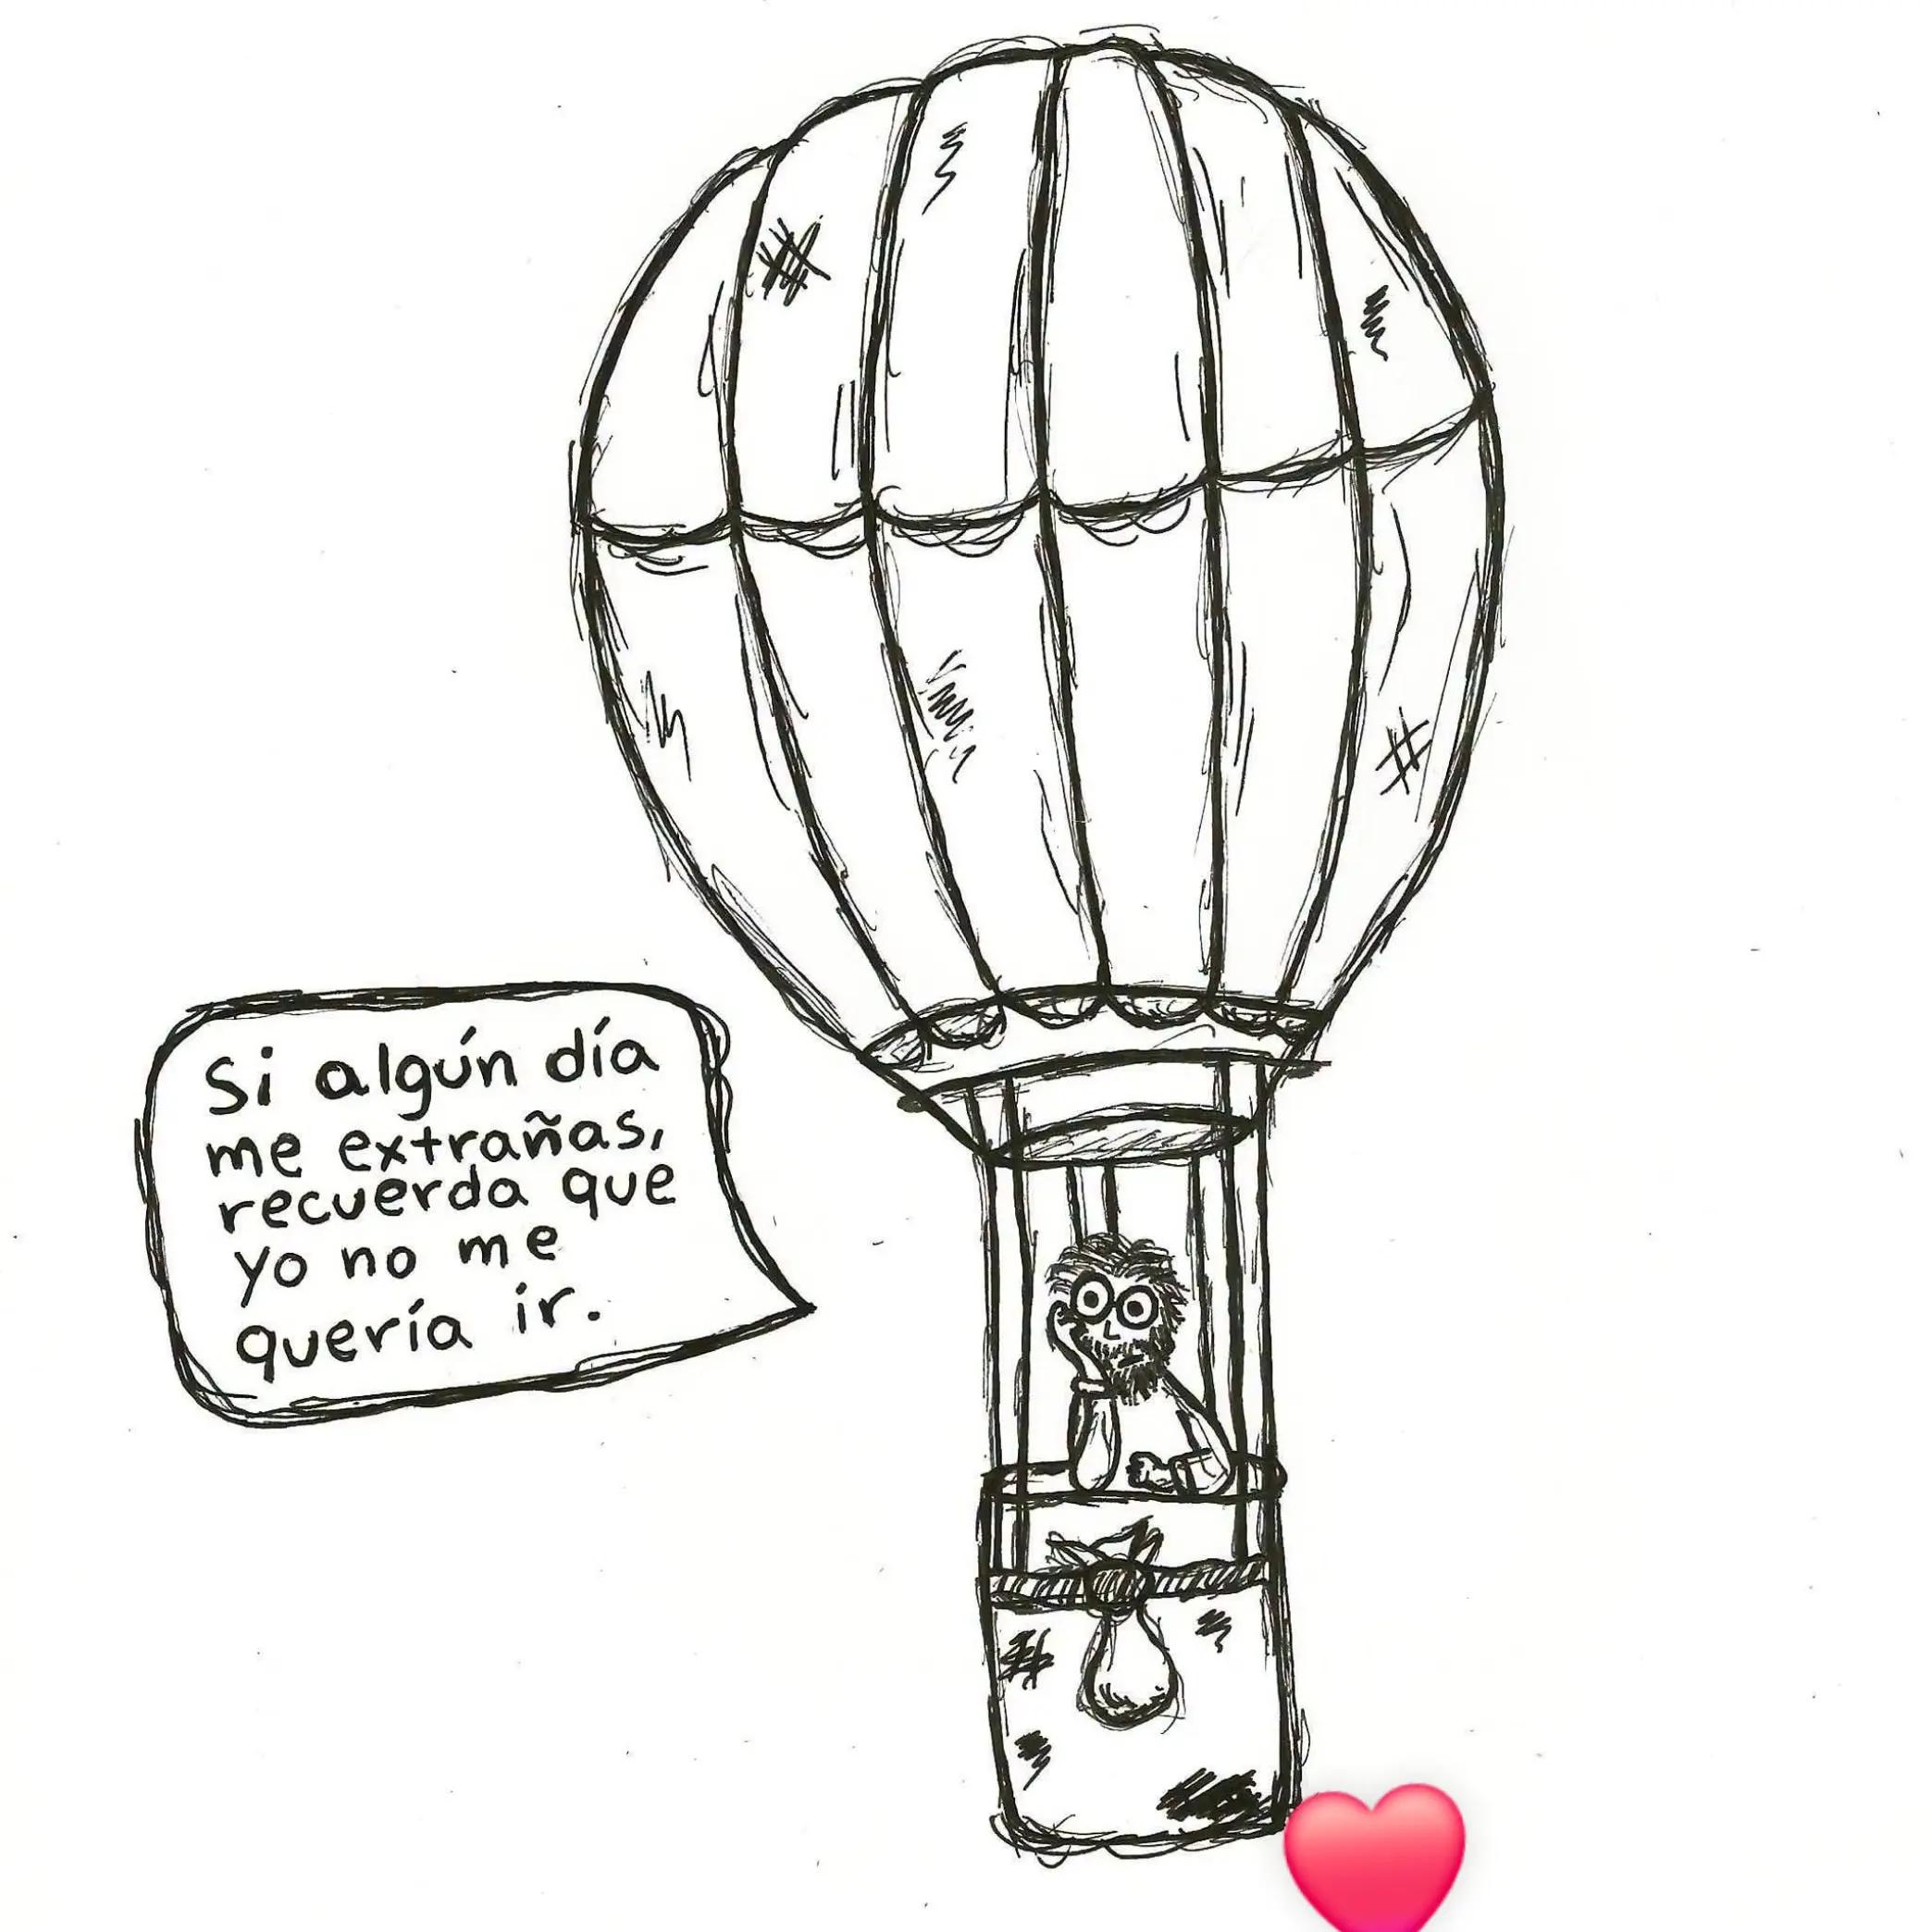 Si algún día
me extrañas,
recuerda que
yo no me
quería ir.